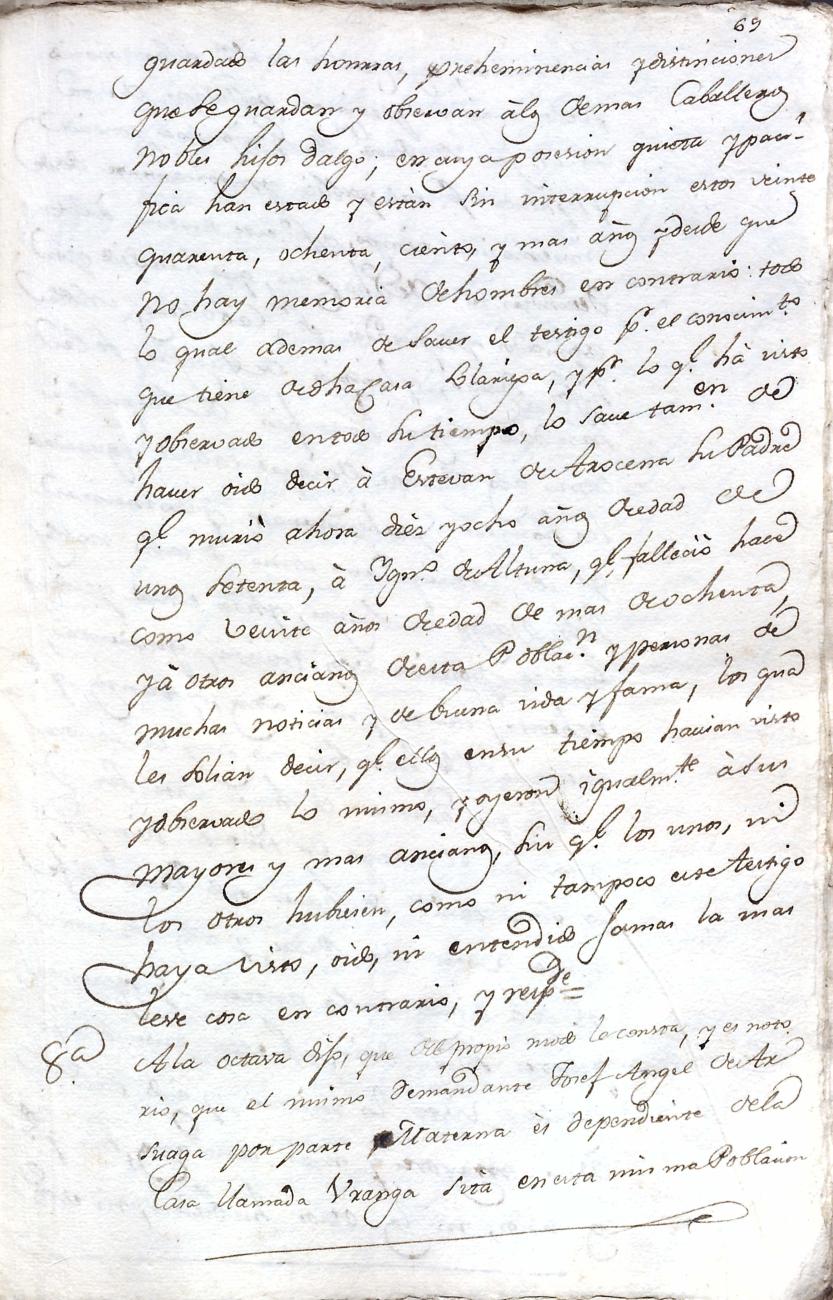 69
guardado las honrras, preheminencias y distinciones
que se guardan y observan à los demas Caballeros
nobles hijos dalgo; en cuya posesion quieta y paci-
fica han estado y estàn sin interrupcion estos veinte
quarenta, ochenta, ciento, y mas años y desde que
no hay memoria de hombres en contrario: todo
lo qual ademas de saver el testigo pr. el conocimto
que tiene de dha Casa Solariega, y pr. lo ql. hà visto
y observado en todo su tiempo, lo save tamen. de
haver oido decir à Estevan de Arocena su Padre
ql. muriò ahora diez y ocho años de edad de
unos setenta, à Ygno. de Altuna, ql. falleciò hace
como veinte años de edad de mas de ochenta,
y à otros ancianos de esta Poblacn. y personas de
muchas noticias y de buena vida y fama, los qua
les solian decir, ql. ellos en su tiempo havian visto
y observado lo mismo, y oyeron igualmte à sus
mayores y mas ancianos, sin ql. los unos, ni
los otros hubiesen, como ni tampoco este testigo
haya visto, oido, ni entendido jamas la mas
leve cosa en contrario, y respde =
8.a A la octava dijo, que del propio modo le consta, y es noto
rio, que el mismo Demandante Josef Angel de Ar
suaga por parte Materna ès dependiente de la
Casa llamada Vranga sita en esta misma Poblacion